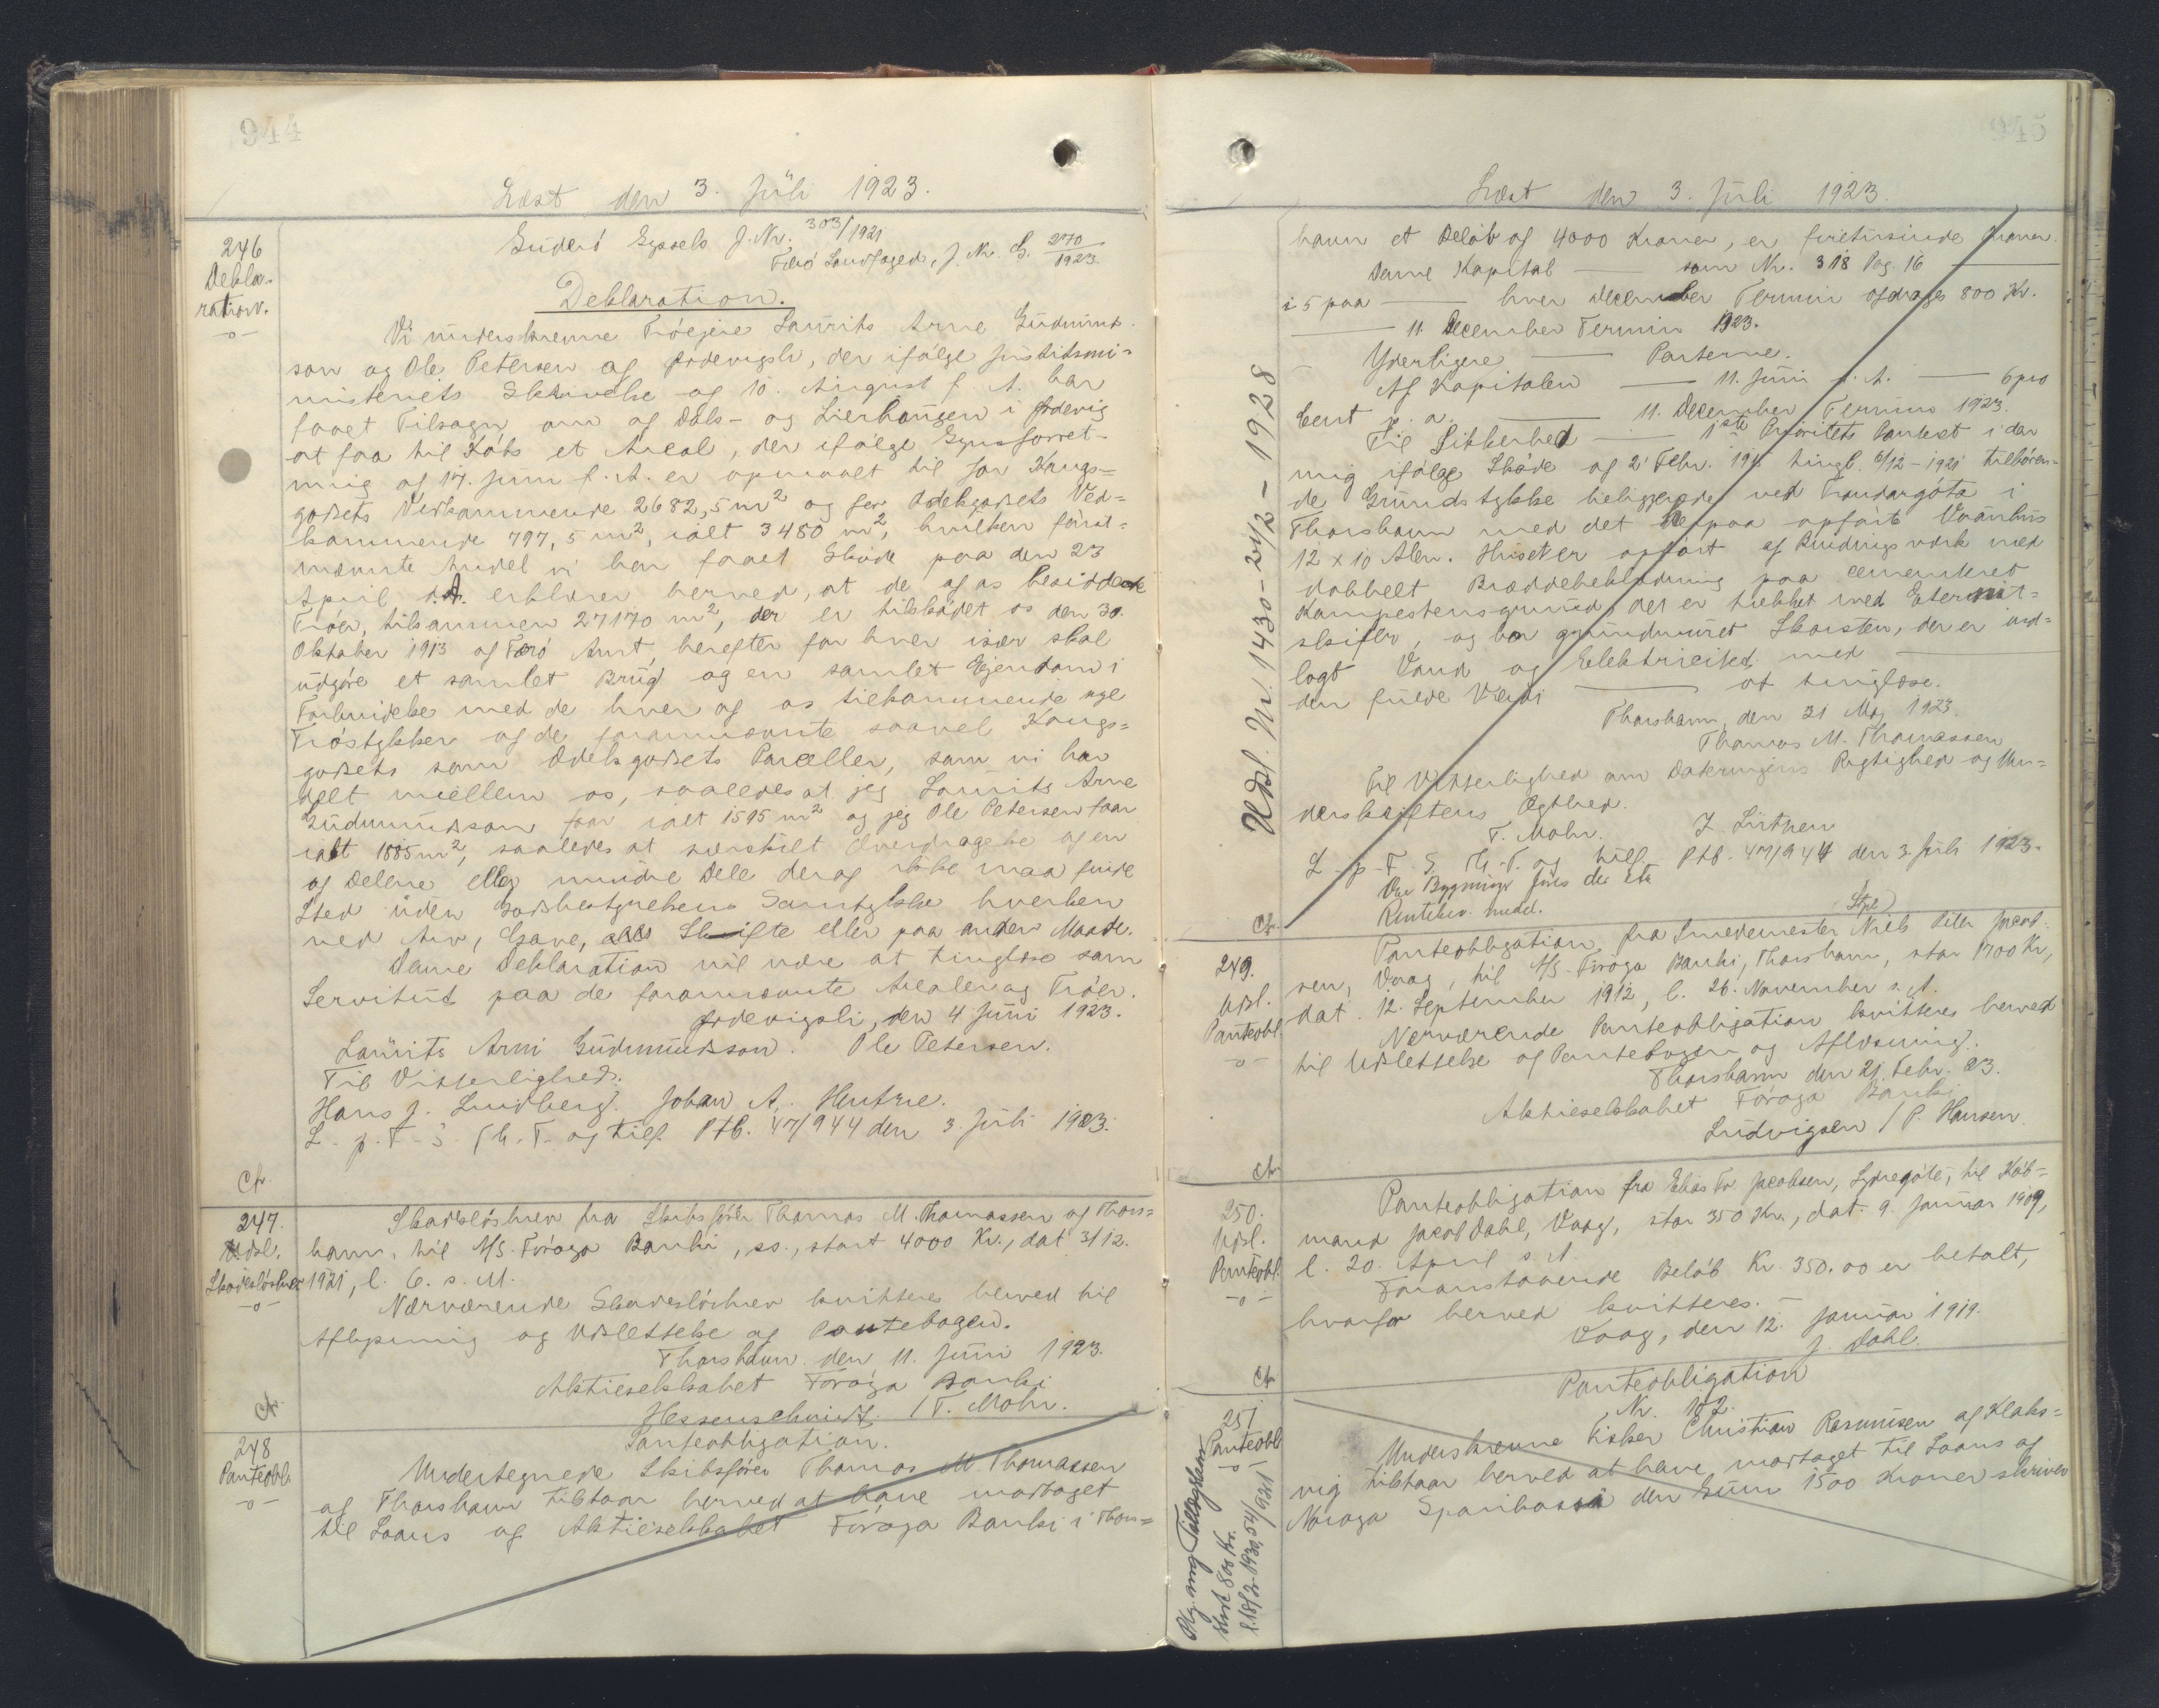 944
Læst den 3. Juli 1923.
246
Dekla-
ration.
-o-
Suderø Syssels J. Nr. 303/1921
Færø Landfoged, J. Nr. G. 270/1923
Deklaration.
Vi underskrevne Trøejere Laurits Arne Gudmund-
son og Ole Petersen af Ørdevigsli, der ifølge Justitsmi-
nisteriets Skrivelse af 10. August f. A. har
faaet Tilsagn om af Dals- og Lierhaugen i Ørdevig
at faa til Købs et Areal, der ifølge Synsforret-
ning af 17. Juni f. A. er opmaalt til for Kongs-
godsets Vedkommende 2682,5 m² og for Odelsgodsets Ved-
kommende 797,5 m², ialt 3480 m², hvilken først-
nævnte Andel vi har faaet Skøde paa den 23
April d.A. erklærer herved, at de af os besiddende
Trøer, tilsammen 27170 m², der er tilskødet os den 30.
Oktober 1913 af Færø Amt, herefter for hver især skal
udgøre et samlet Brug og en samlet Ejendom i
Forbindelse med de hver af os tilkommende nye
Trøstykker af de forannævnte saavel Kongs-
godsets som Odelsgodsets Parceller, som vi har
delt mellem os, saaledes at jeg Laurits Arne
Gudmundsson faar ialt 1595 m² og jeg Ole Petersen faar
ialt 1885 m², saaledes at særskilt Overdragelse af en
af Delene eller mindre Dele deraf ikke maa finde
Sted uden Godsbestyrelsens Samtykke hverken
ved Arv, Gave, Skifte eller paa anden Maade.
Denne Deklaration vil være at tinglæse som
Servitut paa de forannævnte Arealer og Trøer.
Ørdevigsli, den 4 Juni 1923.
Laurits Arni Gudmundsson. Ole Petersen.
Til Vitterlighed:
Hans J. Lundberg. Johan A. Hentze.
L. p. T. S. Th. T. og tilf. Ptb. 47/944 den 3. Juli 1923.
Cfr.
247.
Udsl.
Skadesløsbrev
-o-
Skadesløsbrev fra Skibsfører Thomas M. Thomassen af Thors-
havn, til A/S. Føroya Banki, ss., stort 4000 Kr., dat 3/12.
1921, l. 6. s. M.
Nærværende Skadesløsbrev kvitteres herved til
Aflysning og Udslettelse af Pantebogen.
Thorshavn den 11. Juni 1923.
Aktieselskabet Føroya Banki
Hessenschmidt / T. Mohr.
Cfr.
248
Panteobl.
-o-
Panteobligation.
Undertegnede Skibsfører Thomas M Thomassen
af Thorshavn tilstaar herved at have modtaget
til Laans af Aktieselskabet Føroya Banki i Thors-
Læst den 3. Juli 1923.
havn et Beløb af 4000 Kroner, er firetusinde Kroner.
Denne Kapital — som Nr. 318 Pag. 16 —
i 5 paa — hver December Termin afdrages 800 Kr.
— 11. December Termin 1923.
Yderligere — Parterne.
Af Kapitalen — 11. Juni d. A. — 6 pro
Cent p. a. — 11. December Termin 1923.
Til Sikkerhed — 1ste Prioritets Panteret i den
mig ifølge Skøde af 2' Febr. tingl. 6/12-1921 tilhøren-
de Grundstykke beliggende ved Tróndargøta i
Thorshavn med det derpaa opførte Vaanhus
12 x 10 Alen. Huset er opført af Bindingsværk med
dobbelt Bræddebeklædning paa cementeret
Kampestensgrund, det er tækket med Eternit-
skifer, og har grundmuret Skorsten, der er ind-
lagt Vand og Elektricitet med —
den fulde Værdi — at tinglæse.
Thorshavn, den 31 Maj 1923.
Thomas M. Thomassen
Til Vitterlighed om Dateringens Rigtighed og Un-
derskriftens Ægthed.
T. Mohr. Z. Lützen
L. p. T. S. Th. T. og tilf. Ptb. 47/944 den 3. Juli 1923.
Om Bygninger
Rentebev. medd.
Udsl. Nr. 1430-21/2-1928
Cfr.
249.
Udsl.
Panteobl.
-o-
Panteobligation fra Smedemester Niels Peter Jacob-
sen, Vaag, til A/S. Føroya Banki, Thorshavn, stor 1700 Kr,
dat. 12. September 1912, l. 26. November s. A.
Nærværende Panteobligation kvitteres herved
til Udslettelse af Pantebogen og Aflæsning.
Thorshavn den 21. Febr. 23.
Aktieselskabet Føroya Banki
Ludvigsen / P. Hansen.
Cfr.
250.
Udsl.
Panteobl.
-o-
Panteobligation fra Elias Fr. Jacobsen, Sydregøte, til Køb-
mand Jacob Dahl, Vaag, stor 350 Kr., dat. 9. Januar 1909,
l. 20. April s. A.
Foranstaaende Beløb Kr. 350.00 er betalt,
hvorfor herved kvitteres.
Vaag, den 12. Januar 1919.
J. Dahl.
Cfr.
251
Panteobl
-o-
Panteobligation
Nr. 182.
Underskrevne Fisker Christian Rasmussen af Klaks-
vig tilstaar herved at have modtaget til Laans af
Noroya Sparikassa den Sum 1500 Kroner skriver
Ptg. ang. Tillægslaan
stort 800 Kr.
l. 18/2-1930, 54/931